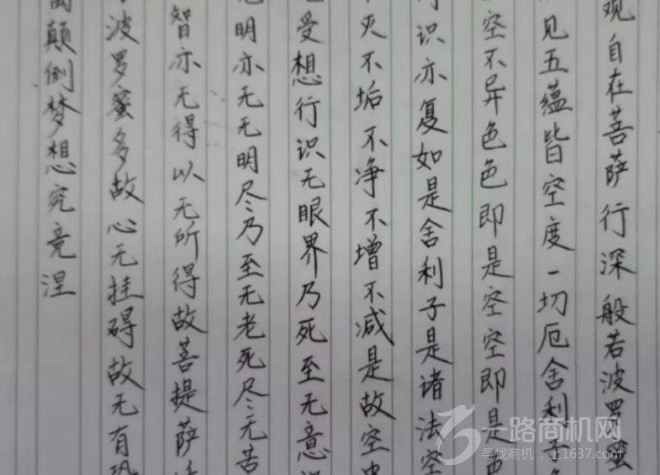 观自在菩萨行深般若波罗蜜
见五蕴皆空度一切厄舍利子
空不异色色即是空空即是色
行识亦复如是舍利子是诸法空
灭不垢不净不增不减是故空中
受想行识无眼界乃死至无意
明亦无无明尽乃至无老死尽无苦
智亦无得以无所得故菩提萨
波罗蜜多故心无挂碍故无有恐
颠倒梦想究竟涅
一路商机网
商机，上1637.com